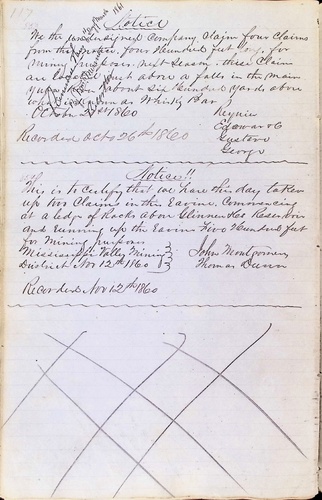 117
Notice
We the undersigned Company Claim four Claims
from this four Hundred feet long for
mining purposes next Season these Claim
are just above a falls in the main
about Six Hundred yards above
Known as Whisky Bar
1860
Regnier
Edward
Gustave
George
Recorded Octo 26th 1860
Notice!!
This is to Certify that we have this day taken
up two Claims in the Ravine Commencing
at a ledge of Rocks above Reservoir
and running up the Ravine Two Hundred feet
for Mining purposes
Mississippi Valley Mining
District Nov 12th 1860
John Montgomery
Thomas Dunn
Recorded Nov 12th 1860